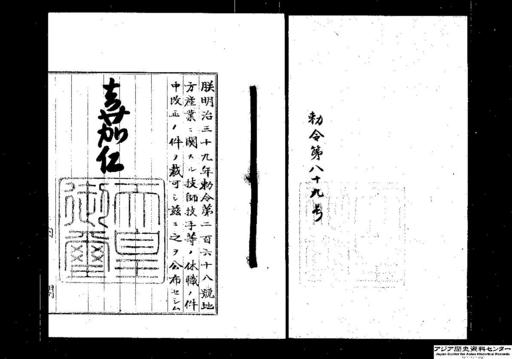 勅令第八十九号
朕明治三十九年勅令第二百六十八號地
方産業ニ関スル技師技手等ノ休職ノ件
中改正ノ件ヲ裁可シ茲ニ之ヲ公布セシム
嘉仁
天皇
御璽
内
閣
アジア歴史資料センター
Japan Center for Asian Historical Records